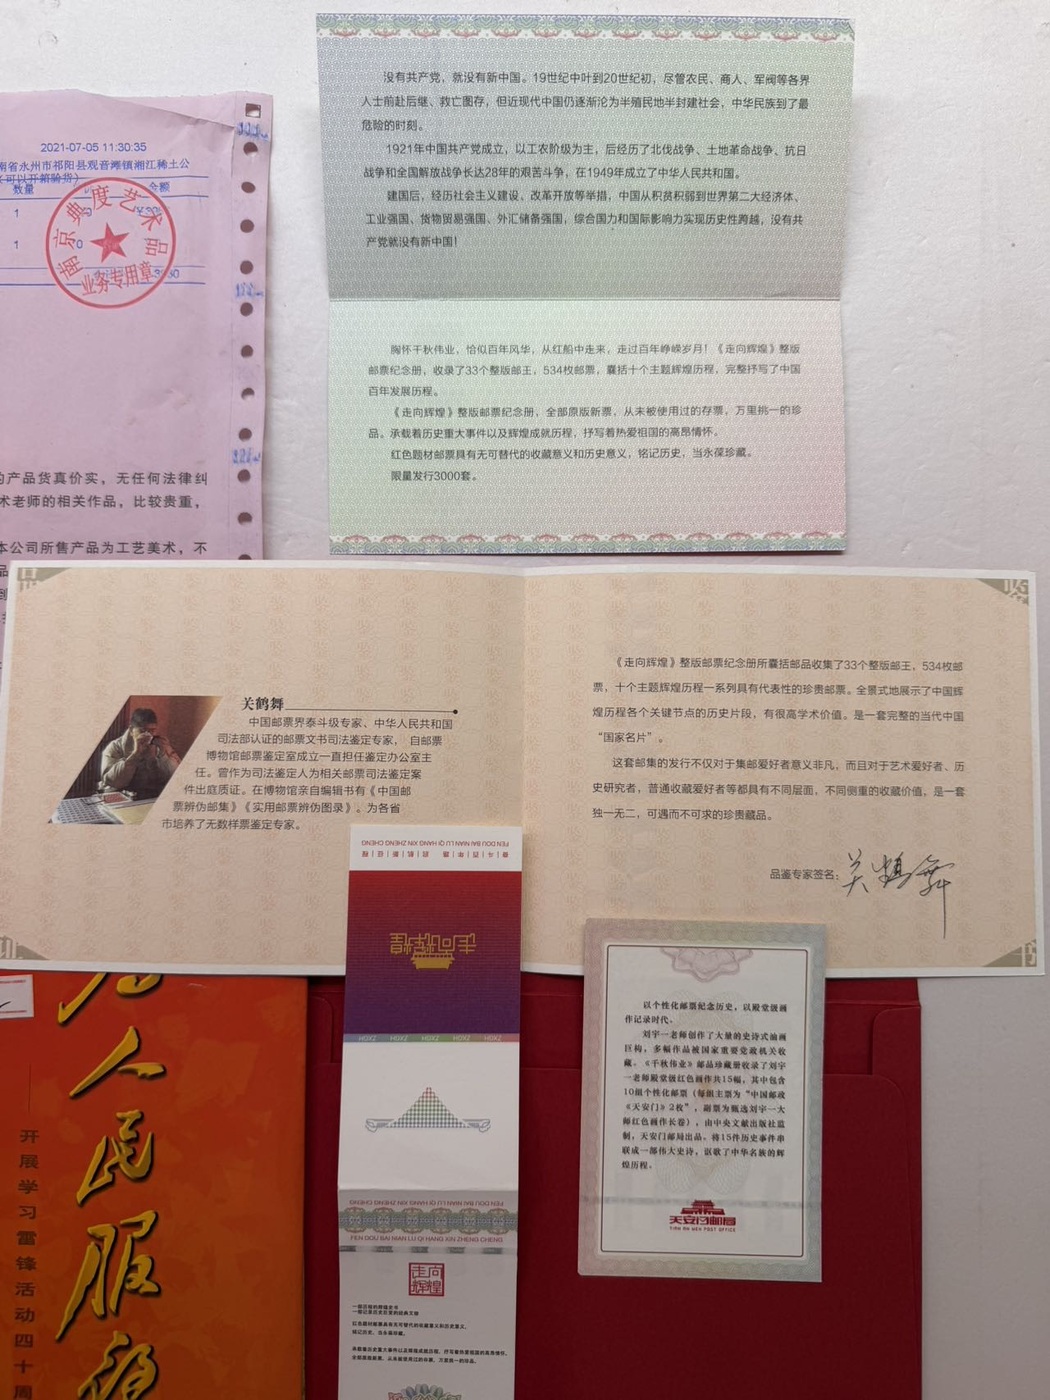 没有共产党，就没有新中国。19世纪中叶到20世纪初，尽管农民、商人、军阀等各界
人士前赴后继、救亡图存，但近现代中国仍逐渐沦为半殖民地半封建社会，中华民族到了最
危险的时刻。
1921年中国共产党成立，以工农阶级为主，后经历了北伐战争、土地革命战争、抗日
战争和全国解放战争长达28年的艰苦斗争，在1949年成立了中华人民共和国。
建国后，经历社会主义建设，改革开放等举措，中国从积贫积弱到世界第二大经济体、
工业强国、货物贸易强国、外汇储备强国，综合国力和国际影响力实现历史性跨越，没有共
产党就没有新中国！
胸怀千秋伟业，恰似百年风华，从红船中走来，走过百年峥嵘岁月！《走向辉煌》整版
邮票纪念册，收录了33个整版邮王，534枚邮票，囊括十个主题辉煌历程，完整抒写了中国
百年发展历程。
《走向辉煌》整版邮票纪念册，全部原版新票，从未被使用过的存票，万里挑一的珍
品。承载着历史重大事件以及辉煌成就历程，抒写着热爱祖国的高昂情怀。
红色题材邮票具有无可替代的收藏意义和历史意义，铭记历史，当永葆珍藏。
限量发行3000套。
2021-07-05 11:30:35
南省永州市祁阳县观音滩镇湘江稀土公
可以开箱验货）
数量
金额
1
1
0
南京典度艺术品
业务专用章
的产品货真价实，无任何法律纠
术老师的相关作品，比较贵重，
本公司所售产品为工艺美术，不
品
到
关鹤舞
中国邮票界泰斗级专家、中华人民共和国
司法部认证的邮票文书司法鉴定专家， 自邮票
博物馆邮票鉴定室成立一直担任鉴定办公室主
任。曾作为司法鉴定人为相关邮票司法鉴定案
件出庭质证。在博物馆亲自编辑书有《中国邮
票辨伪邮集》《实用邮票辨伪图录》。为各省
市培养了无数样票鉴定专家。
《走向辉煌》整版邮票纪念册所囊括邮品收集了33个整版邮王，534枚邮
票，十个主题辉煌历程一系列具有代表性的珍贵邮票。全景式地展示了中国辉
煌历程各个关键节点的历史片段，有很高学术价值。是一套完整的当代中国
“国家名片”。
这套邮集的发行不仅对于集邮爱好者意义非凡，而且对于艺术爱好者、历
史研究者，普通收藏爱好者等都具有不同层面，不同侧重的收藏价值，是一套
独一无二，可遇而不可求的珍贵藏品。
品鉴专家签名：关鹤舞
FEN DOU BAI NIAN LU QI HANG XIN ZHENG CHENG
奋斗百年路 启航新征程
走向辉煌
HGXZ HGXZ HGXZ HGXZ HGXZ
FEN DOU BAI NIAN LU QI HANG XIN ZHENG CHENG
FEN DOU BAI NIAN LU QI HANG XIN ZHENG CHENG
走向辉煌
红色题材邮票具有无可替代的收藏意义和历史意义，
铭记历史，当永葆珍藏。
承载着历史重大事件以及辉煌成就历程，抒写着热爱祖国的高昂情怀。
全部原版新票，从未被使用过的存票，万里挑一的珍品。
以个性化邮票纪念历史，以殿堂级画
作记录时代。
刘宇一老师创作了大量的史诗式油画
巨构，多幅作品被国家重要党政机关收
藏。《千秋伟业》邮品珍藏册收录了刘宇
一老师殿堂级红色画作共15幅，其中包含
10组个性化邮票（每组主票为“中国邮政
《天安门》2枚”，副票为甄选刘宇一大
师红色画作长卷），由中央文献出版社监
制，天安门邮局出品，将15件历史事件串
联成一部伟大史诗，讴歌了中华名族的辉
煌历程。
天安门邮局
TIAN AN MEN POST OFFICE
为人民服务
开展学习雷锋活动四十周